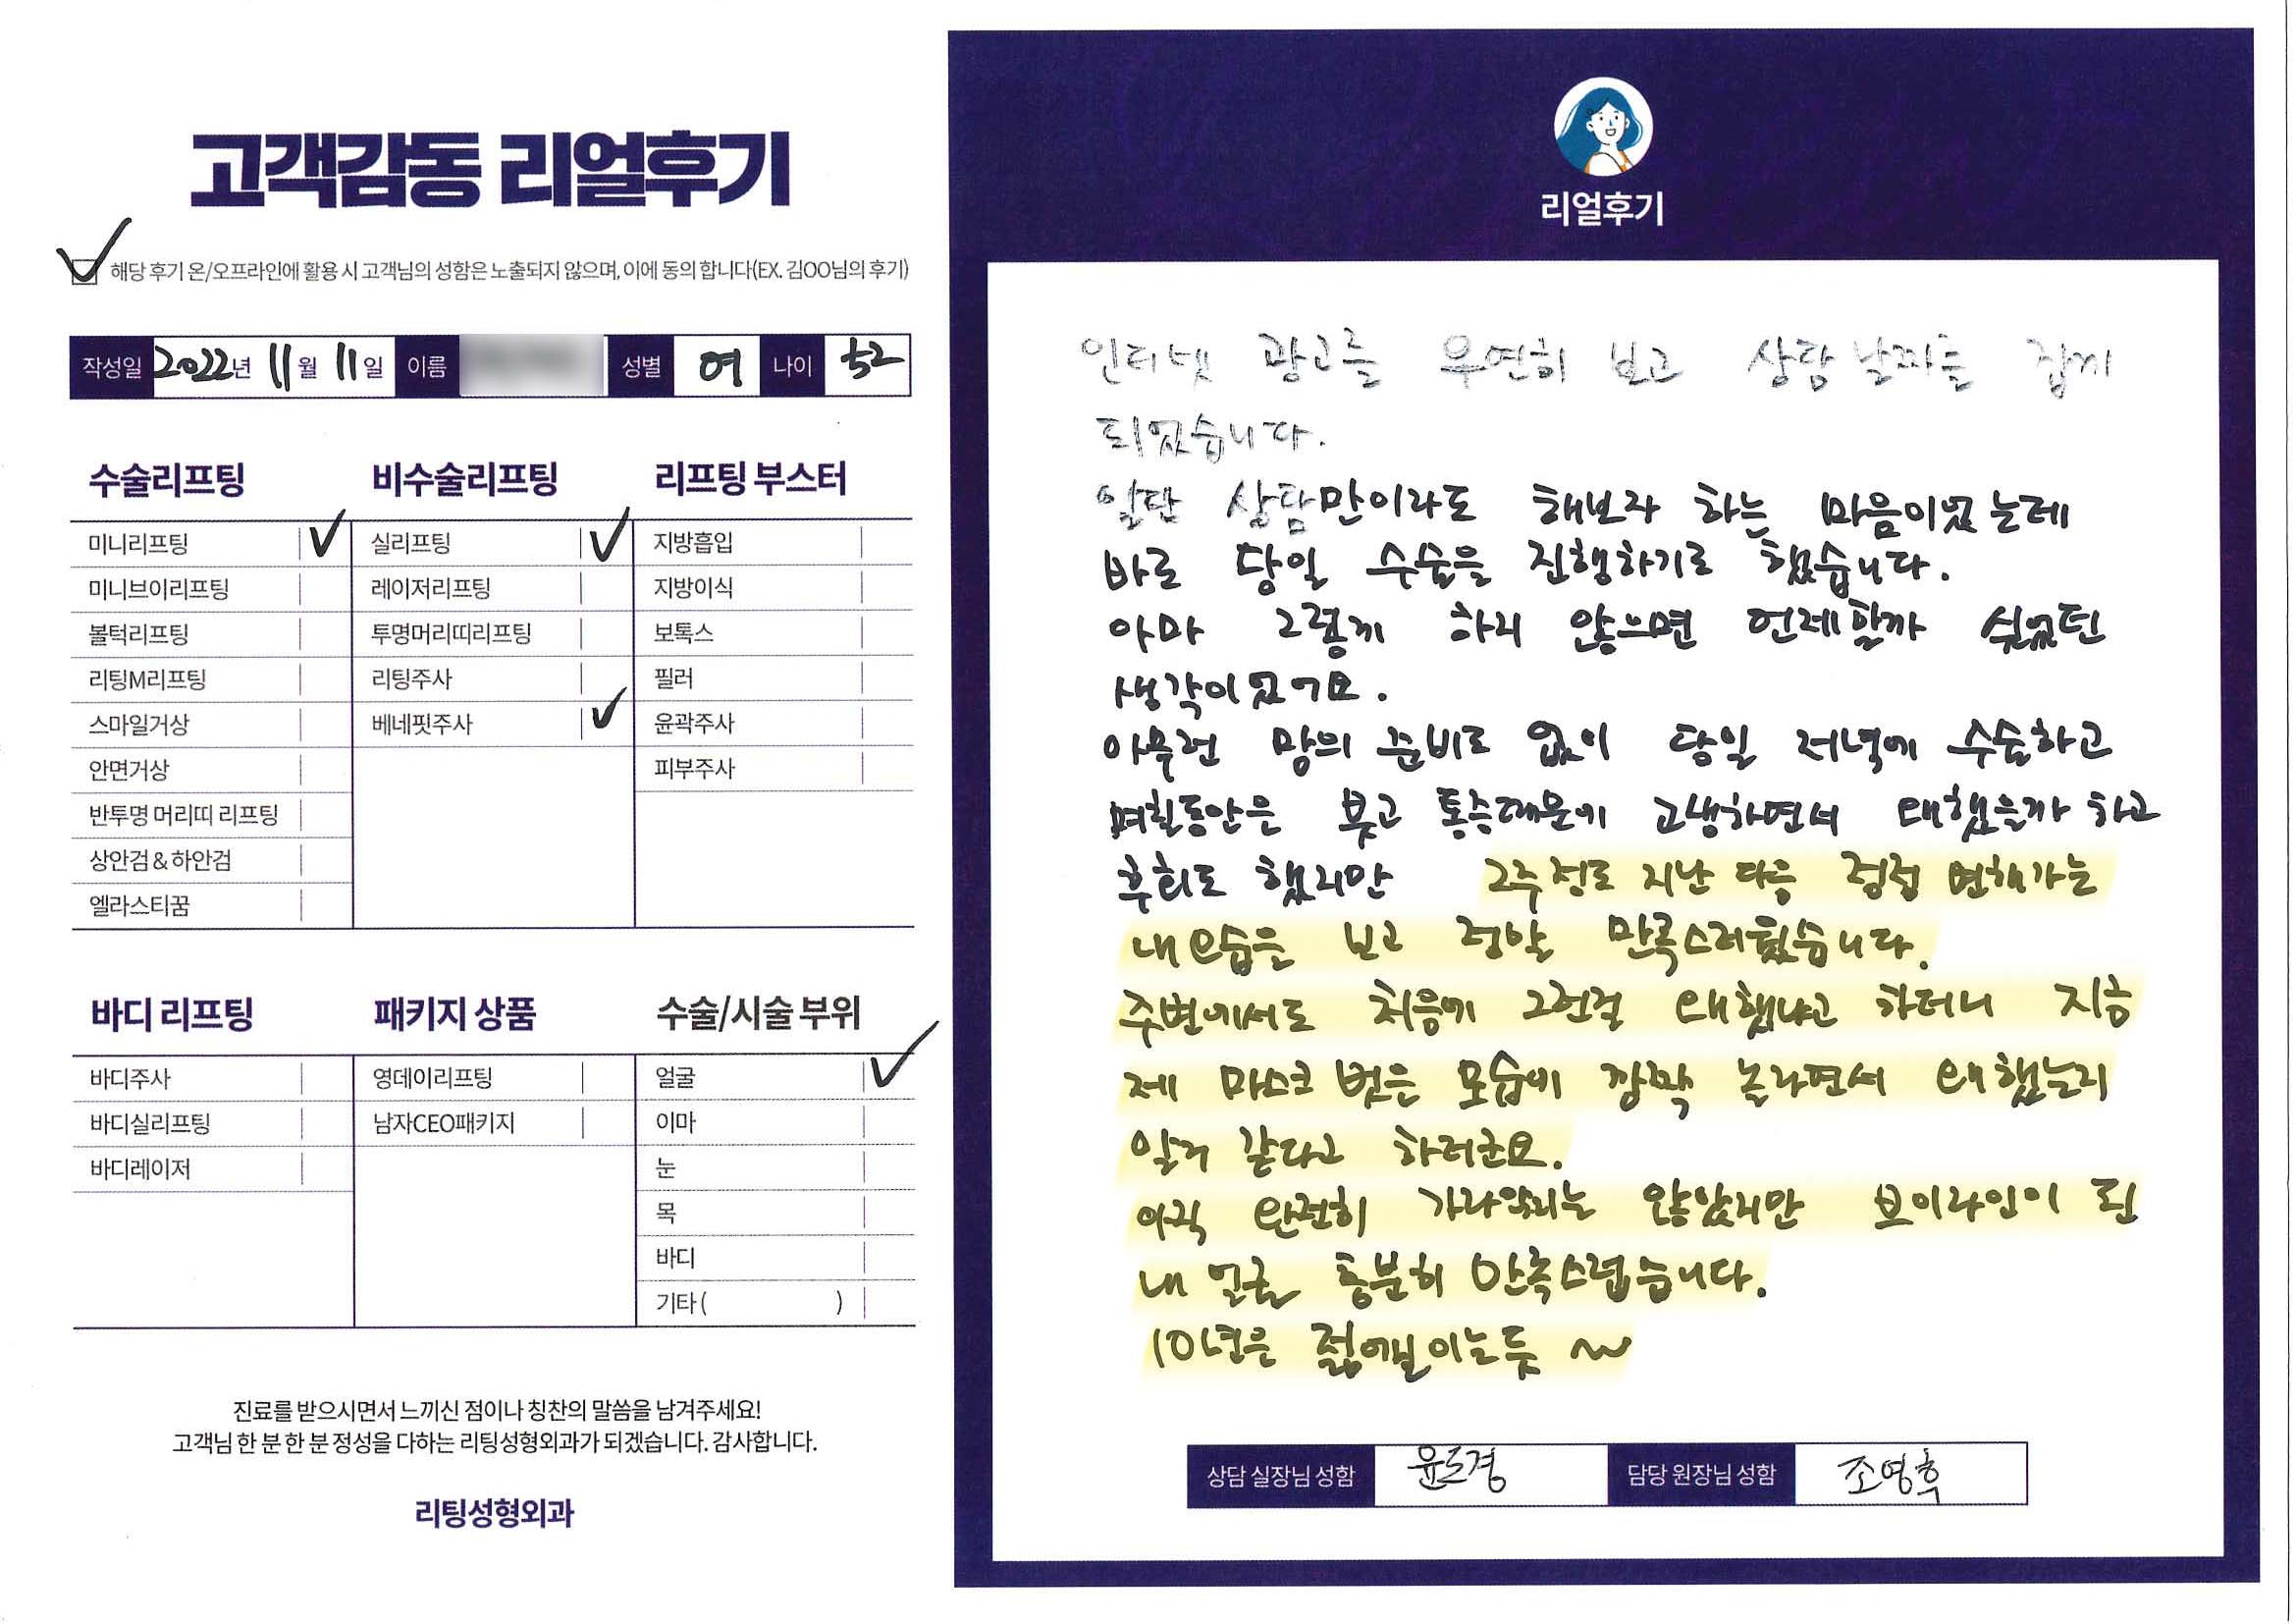 고객감동 리얼후기
해당 후기 온/오프라인에 활용 시 고객님의 성함은 노출되지 않으며, 이에 동의 합니다(EX. 김OO님의 후기)
작성일 2022년 11월 11일 이름 성별 여 나이 52
수술리프팅
미니리프팅
미니브이리프팅
볼턱리프팅
리팅M리프팅
스마일거상
안면거상
반투명 머리띠 리프팅
상안검 & 하안검
엘라스티꿈
비수술리프팅
실리프팅
레이저리프팅
투명머리띠리프팅
리팅주사
베네핏주사
리프팅 부스터
지방흡입
지방이식
보톡스
필러
윤곽주사
피부주사
바디 리프팅
바디주사
바디실리프팅
바디레이저
패키지 상품
영데이리프팅
남자CEO패키지
수술/시술 부위
얼굴
이마
눈
목
바디
기타 ( )
진료를 받으시면서 느끼신 점이나 칭찬의 말씀을 남겨주세요!
고객님 한 분 한 분 정성을 다하는 리팅성형외과가 되겠습니다. 감사합니다.
리팅성형외과
리얼후기
인터넷 광고를 우연히 보고 상담 날짜를 잡게
되었습니다.
일단 상담만이라도 해보자 하는 마음이었는데
바로 당일 수술을 진행하기로 했습니다.
아마 그렇게 하지 않으면 언제할까 싶었던
생각이었어요.
아무런 맘의 준비도 없이 당일 저녁에 수술하고
며칠동안은 붓고 통증때문에 고생하면서 왜했을까 하고
후회도 했지만 2주정도 지난 다음 점점 변해가는
내모습을 보고 정말 만족스러웠습니다.
주변에서도 처음에 그런걸 왜했냐고 하더니 지금
제 마스크 벗은 모습에 깜짝 놀라면서 왜했는지
알거 같다고 하더군요.
아직 완전히 가라앉지는 않았지만 브이라인이 된
내 얼굴 충분히 만족스럽습니다.
10년은 젊어보이는듯 ~
상담 실장님 성함 윤도경 담당 원장님 성함 조영훈